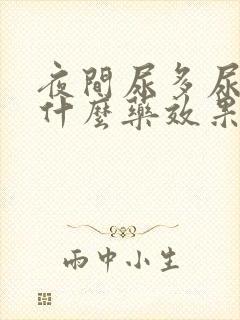 夜間尿多尿
什麼藥效果
雨中小生